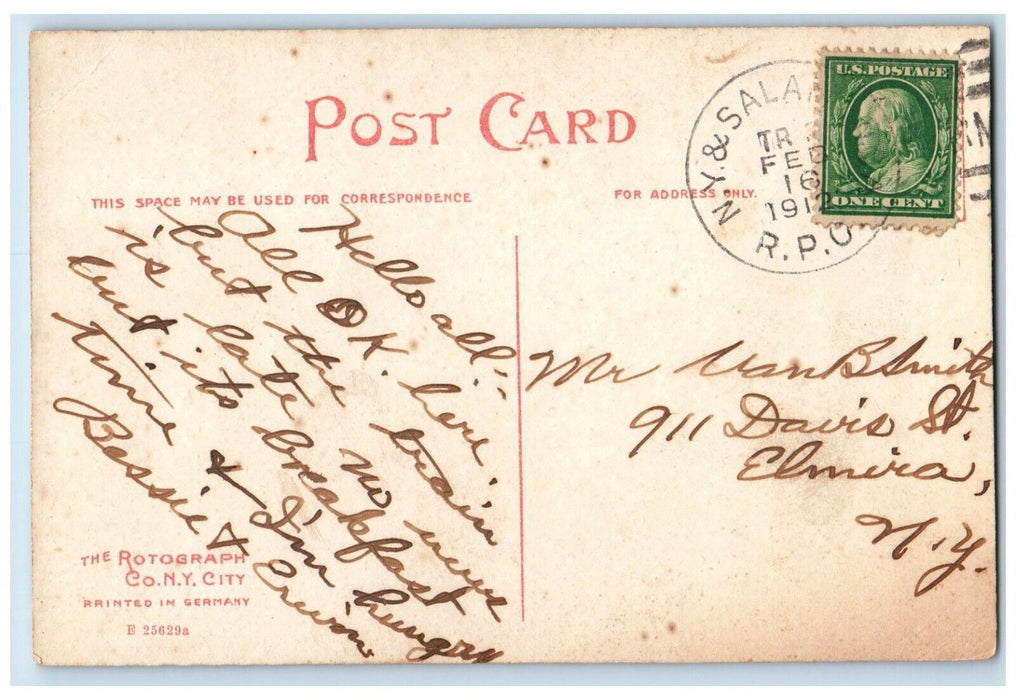 POST CARD
THIS SPACE MAY BE USED FOR CORRESPONDENCE
FOR ADDRESS ONLY.
U.S. POSTAGE
ONE CENT
N.Y. & SALA
TR
FEB
16
1912
R.P.O
Hello all!
All O K. here.
but the train
is late No news
but its breakfast
time & I'm hungry
Bessie & Erwin
Mr Van B Smith
911 Davis St.
Elmira,
N.Y.
THE ROTOGRAPH
CO. N.Y. CITY
PRINTED IN GERMANY
E 25629a